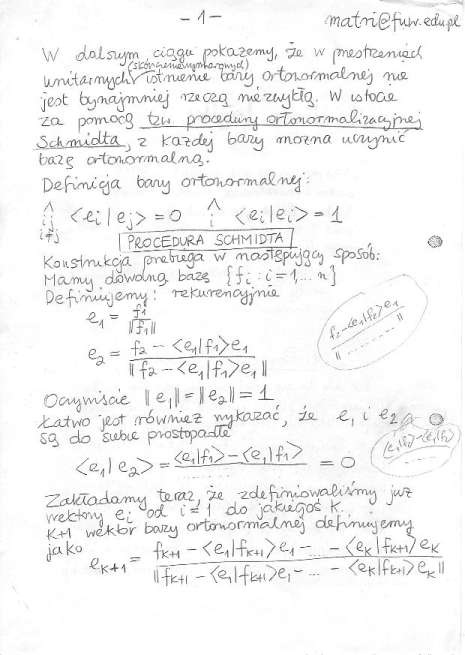 - 1 -
matri@fuw.edu.pl
W dalszym ciągu pokażemy, że w przestrzeniach
(skończeniewymiarowych)
unitarnych istnienie bazy ortonormalnej nie
jest bynajmniej rzeczą niezwykłą. W istocie
za pomocą tzw procedury ortonormalizacyjnej
Schmidta, z każdej bazy można uczynić
bazę ortonormalną.
Definicja bazy ortonormalnej:
∧ i,j i≠j <ei|ej> = 0 ∧ i <ei|ei> = 1
PROCEDURA SCHMIDTA
Konstrukcja przebiega w następujący sposób:
Mamy dowolną bazę {fi : i = 1,... n}
Definiujemy: rekurencyjnie
e1 = f1 / ||f1||
e2 = f2 - <e1|f1>e1 / || f2 - <e1|f1>e1 ||
f2 - <e1|f2>e1
|| ........ ||
Oczywiście ||e1|| = ||e2|| = 1
Łatwo jest również wykazać, że e1 i e2
są do siebie prostopadłe
<e1|e2> = <e1|f1> - <e1|f1> / ...... = 0
<e1|f2> - <e1|f2>
Zakładamy teraz, że zdefiniowaliśmy już
wektory ei od i = 1 do jakiegoś k.
k+1 wektor bazy ortonormalnej definiujemy
jako
ek+1 = fk+1 - <e1|fk+1>e1 - ... - <ek|fk+1>ek / || fk+1 - <e1|fk+1>e1 - ... - <ek|fk+1>ek ||